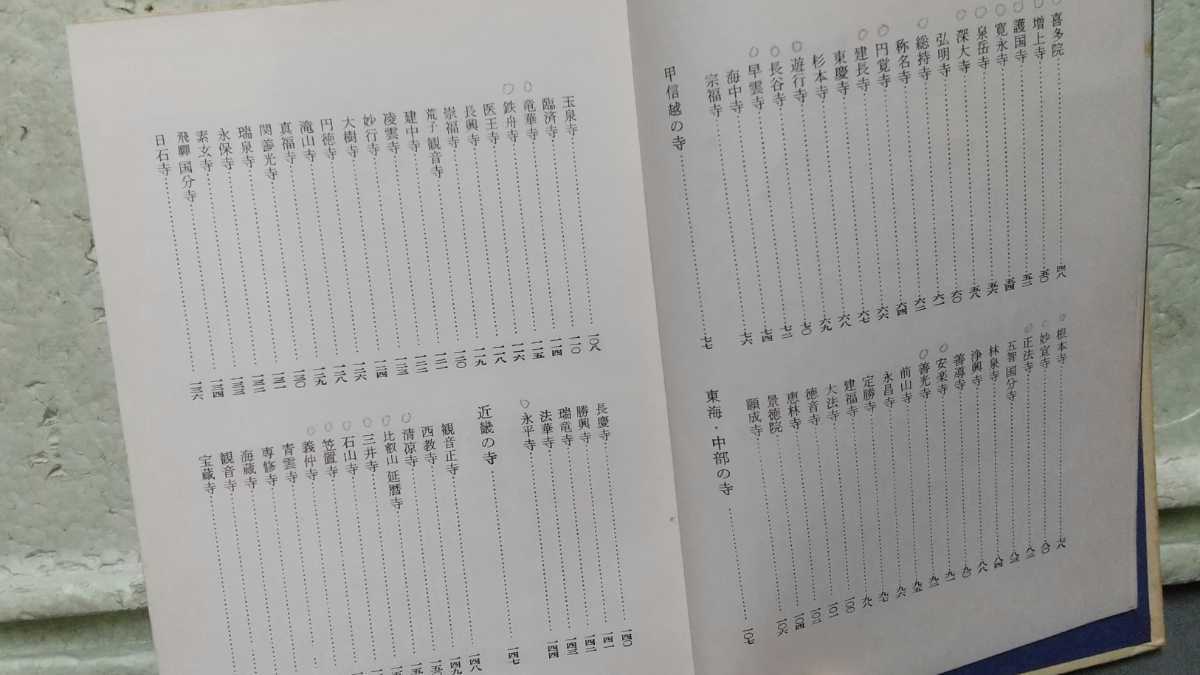 喜多院 四八
増上寺 五〇
護国寺 五二
寛永寺 五四
泉岳寺 五六
深大寺 五八
弘明寺 六〇
称名寺 六一
総持寺 六二
円覚寺 六四
建長寺 六六
東慶寺 六七
杉本寺 六八
遊行寺 六九
長谷寺 七〇
早雲寺 七二
海中寺 七四
宗福寺 七六
甲信越の寺 七七
根本寺 七八
妙宣寺 八〇
正法寺 八二
五智国分寺 八三
林泉寺 八四
浄興寺 八八
善導寺 九〇
安楽寺 九一
善光寺 九二
前山寺 九五
永昌寺 九六
定勝寺 九七
建福寺 九八
大法寺 一〇〇
徳音寺 一〇一
恵林寺 一〇二
景徳院 一〇四
願成寺 一〇六
東海・中部の寺 一〇七
玉泉寺 一〇八
臨済寺 一一〇
竜華寺 一一四
鉄舟寺 一一五
医王寺 一一六
長興寺 一一八
崇福寺 一一九
荒子観音寺 一二〇
建中寺 一二一
凌雲寺 一二二
妙行寺 一二三
大樹寺 一二四
円徳寺 一二六
滝山寺 一二八
真福寺 一二九
関善光寺 一三〇
瑞泉寺 一三一
永保寺 一三二
素玄寺 一三三
飛騨国分寺 一三四
日石寺 一三六
長慶寺 一四〇
勝興寺 一四一
瑞竜寺 一四二
法華寺 一四三
永平寺 一四四
近畿の寺 一四七
観音正寺 一四八
西教寺 一四九
清凉寺
比叡山延暦寺
三井寺
石山寺
笠置寺
義仲寺
青雲寺
専修寺
海蔵寺
観音寺
宝蔵寺